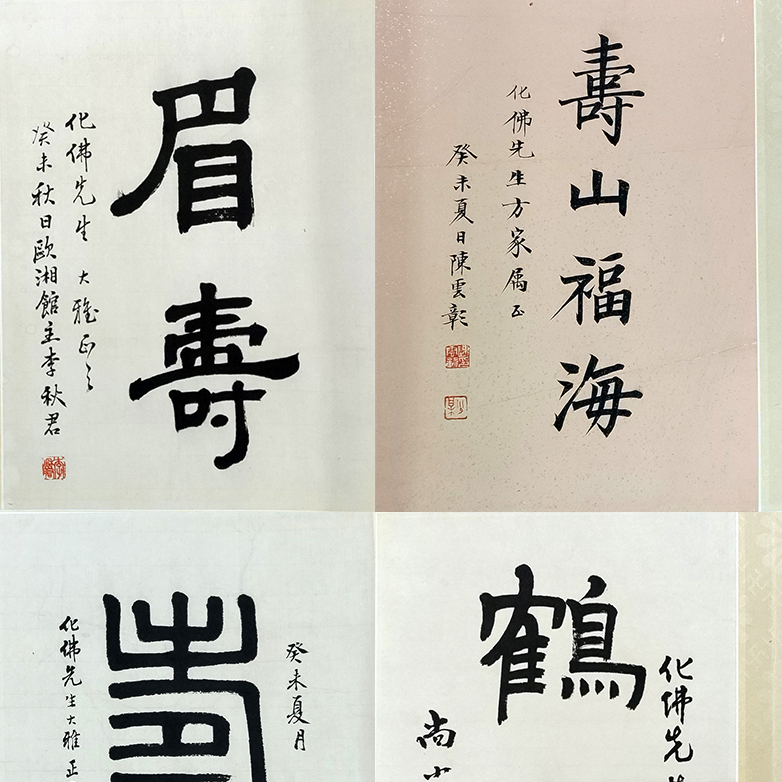 眉壽
化佛先生 大雅正之
癸未秋日歐湘館主李秋君
壽山福海
化佛先生方家属正
癸未夏日陳雲彰
癸未夏月
壽
化佛先生大雅正
化佛先
鶴
尚小